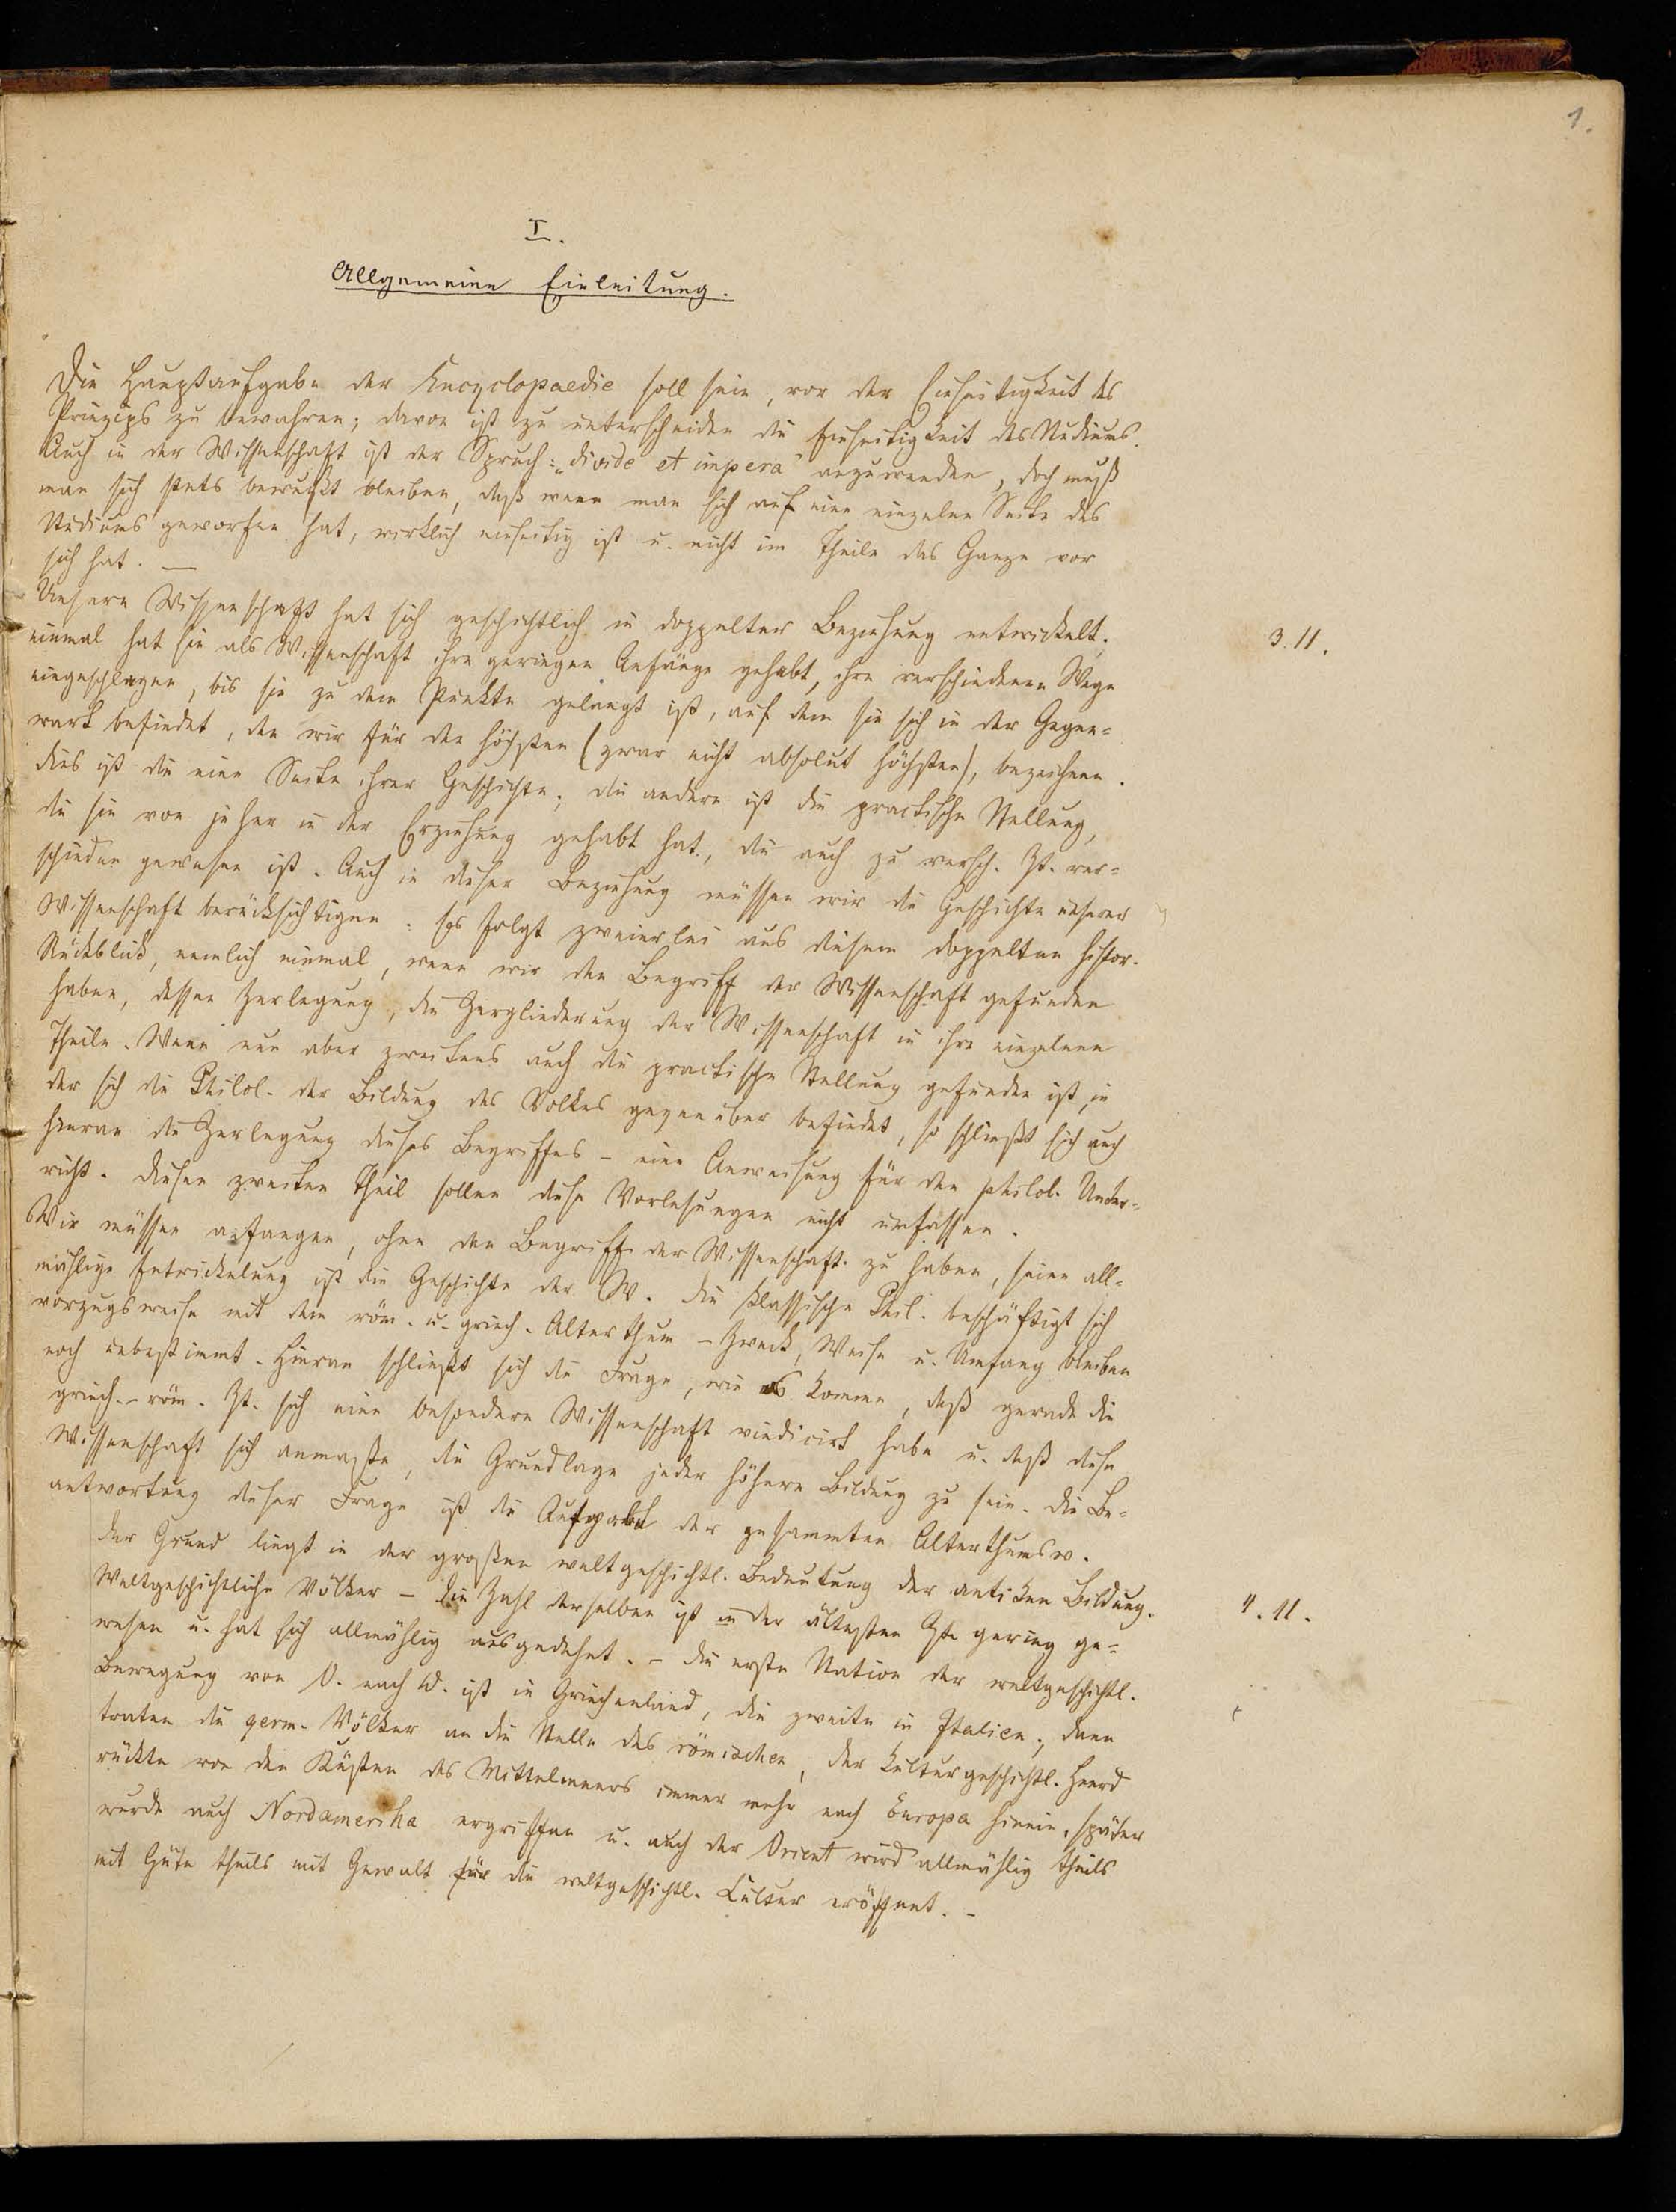 1.
I.
Allgemeine Einleitung.
Die Hauptaufgabe der Encyclopaedie soll sein, vor der Einseitigkeit des
Prinzips zu bewahren; davon ist zu unterscheiden die Einseitigkeit des Studiums.
Auch in der Wissenschaft ist der Spruch: „divide et impera“ anzuwenden, doch muß
man sich stets bewußt bleiben, daß wenn man sich auf eine einzelne Seite des
Studiums geworfen hat, wirklich einseitig ist u. nicht im Theile das Ganze vor
sich hat. —
Unsere Wissenschaft hat sich geschichtlich in doppelter Beziehung entwickelt.
3.11.
einmal hat sie als Wissenschaft ihre geringen Anfänge gehabt, ihre verschiedenen Wege
eingeschlagen, bis sie zu dem Punkte gelangt ist, auf dem sie sich in der Gegen=
wart befindet, den wir für den höchsten (zwar nicht absolut höchsten), bezeichnen.
dies ist die eine Seite ihrer Geschichte; die andere ist die practische Stellung,
die sie von jeher in der Erziehung gehabt hat, die auch zu versch. Zt. ver=
schieden gewesen ist. Auch in dieser Beziehung müssen wir die Geschichte unserer
Wissenschaft berücksichtigen. Es folgt zweierlei aus diesem doppelten histor.
Rückblick, nemlich einmal, wenn wir den Begriff der Wissenschaft gefunden
haben, dessen Zerlegung, die Zergliederung der Wissenschaft in ihre einzelnen
Theile. Wenn nun aber zweitens auch die practische Stellung gefunden ist, in
der sich die Philol. der Bildung des Volkes gegenüber befindet, so schließt sich auch
hieran die Zerlegung dieses Begriffes – eine Anweisung für den philol. Unter=
richt. Diesen zweiten Theil sollen diese Vorlesungen nicht umfassen.
Wir müssen anfangen, ohne den Begriff der Wissenschaft zu haben, seine all=
mählige Entwickelung ist die Geschichte der W. Die klassische Phil. beschäftigt sich
vorzugsweise mit dem röm. u. griech. Alterthum – Zweck, Weise u. Umfang bleiben
noch unbestimmt. Hieran schließt sich die Frage, wie es komme, daß gerade die
griech.-röm. Zt. sich eine besondere Wissenschaft vindicirt habe u. daß diese
Wissenschaft sich anmaßte, die Grundlage jeder höhern Bildung zu sein. Die Be=
antwortung dieser Frage ist die Aufgabe der gesammten Alterthumsw.
Der Grund liegt in der großen weltgeschichtl. Bedeutung der antiken Bildung.
Weltgeschichtliche Völker – die Zahl derselben ist in der ältesten Zt. gering ge=
4.11.
wesen u. hat sich allmählig ausgedehnt. – Die erste Station der weltgeschichtl.
Bewegung von O. nach W. ist in Griechenland, die zweite in Italien; dann
traten die germ. Völker an die Stelle des römischen, der kulturgeschichtl. Heerd
rückte von den Küsten des Mittelmeers immer mehr nach Europa hinein, später
wurde auch Nordamerika ergriffen u. auch der Orient wird allmählig theils
mit Güte theils mit Gewalt für die weltgeschichtl. Cultur eröffnet. –